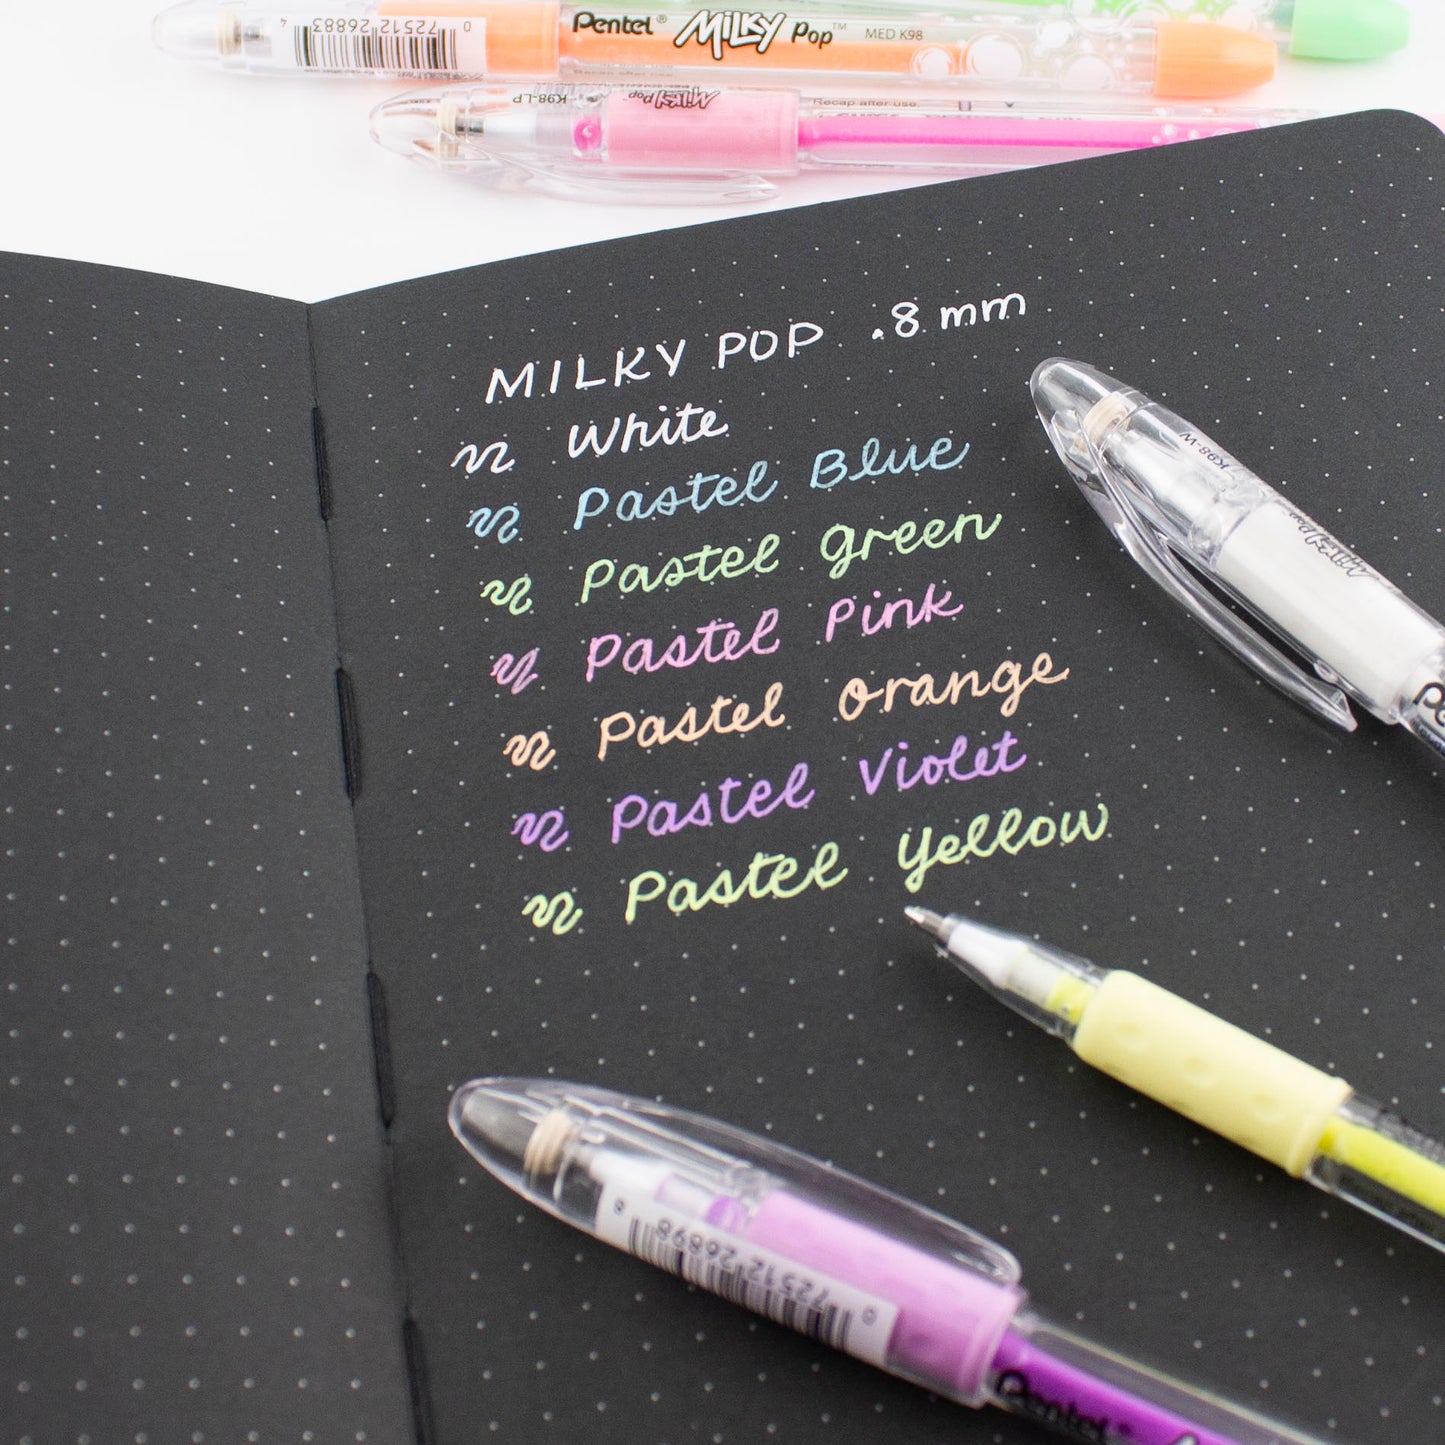 0 72512 26883 4
Pentel® Milky Pop™ MED K98
Recap after use
K98-LP Milky Pop™ Recap after use
MILKY POP .8 mm
White
Pastel Blue
Pastel Green
Pastel Pink
Pastel Orange
Pastel Violet
Pastel Yellow
K98-W Milky Pop
0 72512 26890
Pentel®